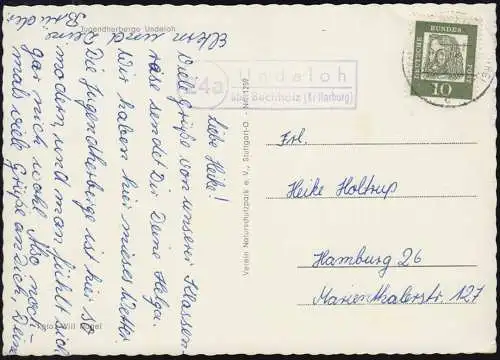 Jugendherberge Undeloh
Liebe Heike!
Viele Grüße von unserer Klassen-
reise sendet Dir Deine Helga.
Wir haben hier mieses Wetter.
Die Jugendherberge ist hier so
modern, und man fühlt sich
gar nicht wohl. Also noch-
mals viele Grüße an dich, Deine
Eltern und Deine
Brüder
24a
Undeloh
über Buchholz (Kr Harburg)
DEUTSCHE BUNDESPOST
10
Verein Naturschutzpark e. V., Stuttgart-O - Nr. 1259
Foto: Will Vogel
Frl.
Heike Holtrup
Hamburg 26
Marienthalerstr. 127